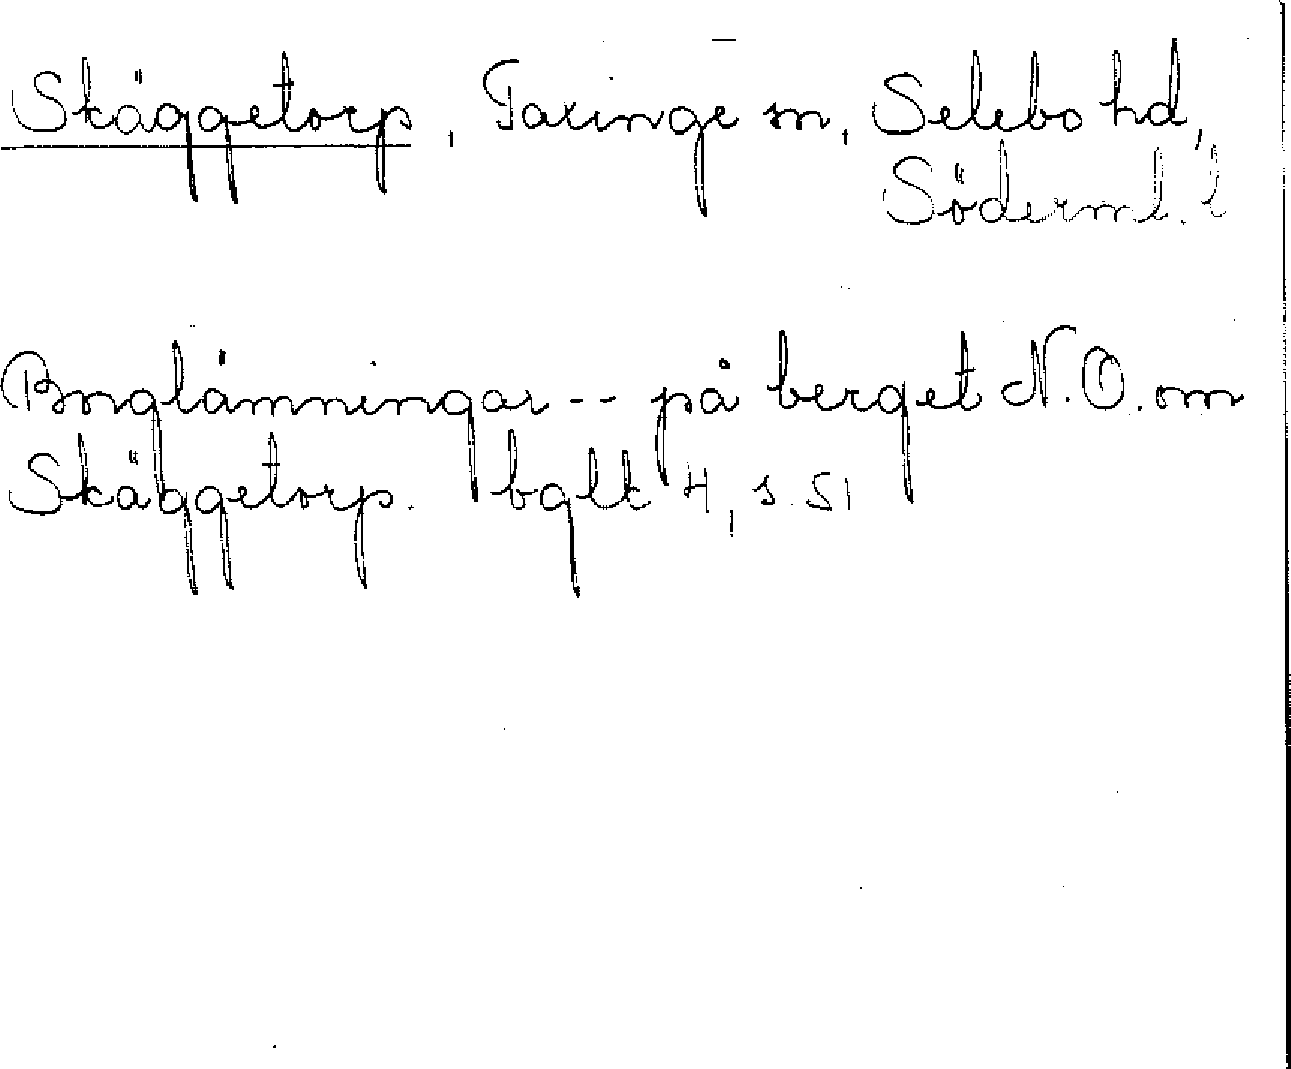 Skäggetorp, Taxinge sn, Selebo hd,
Söderml. l
Borglämningar -- på berget N.O. om
Skäggetorp. bglt 4, s. 51